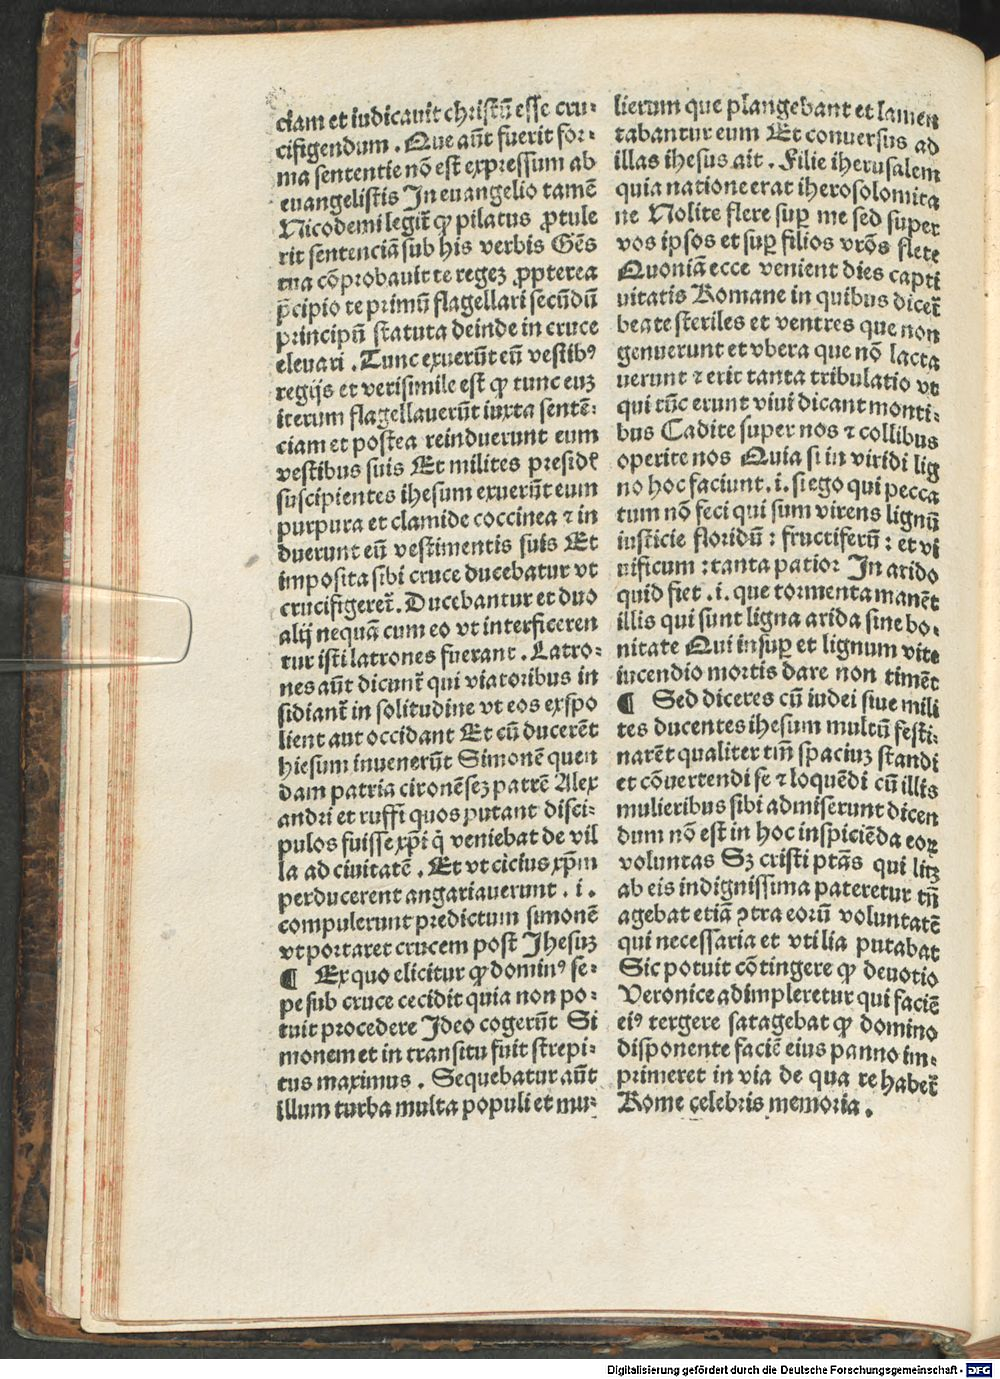 ciam et iudicauit christū esse cru-
cifigendum . Que aūt fuerit for-
ma sententie nō est expressum ab
euangelistis In euangelio tamē
Nicodemi legit̄ ꝙ pilatus ꝓtule
rit sentenciā sub his verbis Gēs
tua cōprobauit te regeꝫ ꝓpterea
p̄cipio te primū flagellari secūdū
principū statuta deinde in cruce
eleuari . Tunc exuerūt eū vestibꝰ
regijs et verisimile est ꝙ tunc euꝫ
iterum flagellauerūt iuxta sentē-
ciam et postea reinduerunt eum
vestibus suis Et milites presid̄
suscipientes ihesum exuerūt eum
purpura et clamide coccinea ⁊ in
duerunt eū vestimentis suis Et
imposita sibi cruce ducebatur vt
crucifigeret̄ . Ducebantur et duo
alij nequā cum eo vt interficeren
tur isti latrones fuerant . Latro-
nes aūt dicunt̄ qui viatoribus in
sidiant̄ in solitudine vt eos exspo
lient aut occidant Et cū ducerēt
hiesum inuenerūt Simonē quen
dam patria cironēseꝫ patrē Alex
andri et ruffi quos putant disci-
pulos fuisse xp̄i q̄ veniebat de vil
la ad ciuitatē . Et vt cicius xp̄m
perducerent angariauerunt . i .
compulerunt predictum simonē
vt portaret crucem post Jhesuꝫ
¶ Ex quo elicitur ꝙ dominꝰ se-
pe sub cruce cecidit quia non po-
tuit procedere Ideo cogerūt Si
monem et in transitu fuit strepi-
tus maximus . Sequebatur aūt
illum turba multa populi et mu-
lierum que plangebant et lamen
tabantur eum Et conuersus ad
illas ihesus ait . Filie iherusalem
quia natione erat iherosolomita
ne Nolite flere suꝑ me sed super
vos ipsos et suꝑ filios vrōs flete
Quoniā ecce venient dies capti
uitatis Romane in quibus dicet̄
beate steriles et ventres que non
genuerunt et vbera que nō lacta
uerunt ⁊ erit tanta tribulatio vt
qui tūc erunt viui dicant monti-
bus Cadite super nos ⁊ collibus
operite nos Quia si in viridi lig
no hoc faciunt . i . si ego qui pecca
tum nō feci qui sum virens lignū
iusticie floridū : fructiferū : et vi
uificum : tanta patior In arido
quid fiet . i . que tormenta manēt
illis qui sunt ligna arida sine bo-
nitate Qui insuꝑ et lignum vite
incendio mortis dare non timēt
¶ Sed diceres cū iudei siue mili
tes ducentes ihesum multū festi-
narēt qualiter tm̄ spaciuꝫ standi
et cōuertendi se ⁊ loquēdi cū illis
mulieribus sibi admiserunt dicen
dum nō est in hoc inspiciēda eoꝝ
voluntas Sꝫ cristi ptās qui litꝫ
ab eis indignissima pateretur tn̄
agebat etiā ꝯtra eorū voluntatē
qui necessaria et vtilia putabat
Sic potuit cōtingere ꝙ deuotio
Veronice adimpleretur qui faciē
eiꝰ tergere satagebat ꝙ domino
disponente faciē eius panno im-
primeret in via de qua re habet̄
Rome celebris memoria .
Digitalisierung gefördert durch die Deutsche Forschungsgemeinschaft - DFG